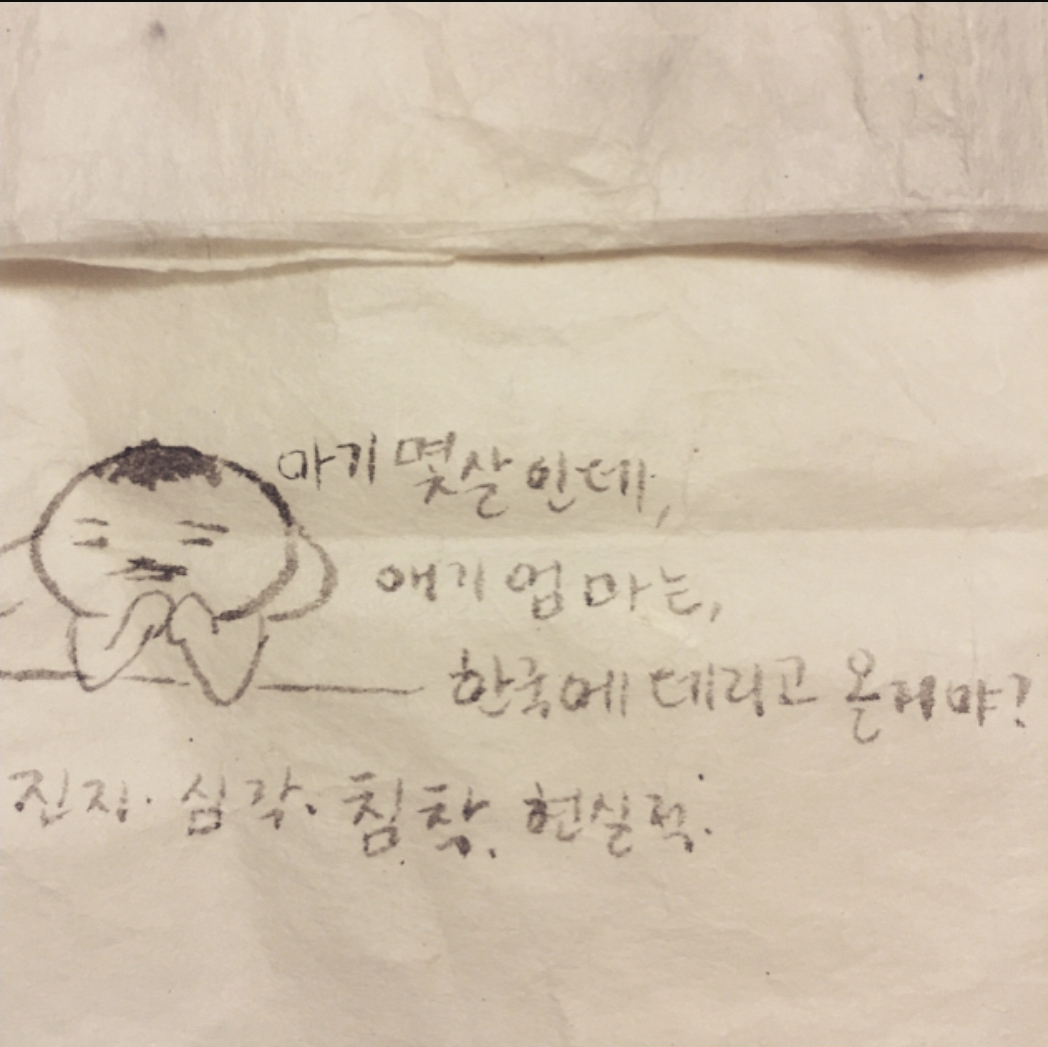 아기 몇살인데,
애기 엄마는,
한국에 데리고 올거야?
진지. 심각. 침착. 현실적.